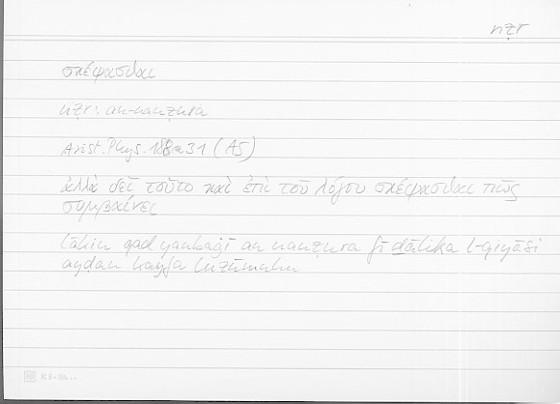 nẓr
σκέψασθαι
nẓr: an-nanẓura
Arist. Phys. 188a31 (A5)
ἀλλὰ δεῖ τοῦτο καὶ ἐπὶ τοῦ λόγου σκέψασθαι πῶς
συμβαίνει
lākin qad yanbaġī an nanẓura fī ḏālika l-qiyāsi
ayḍan kayfa luzūmuhu